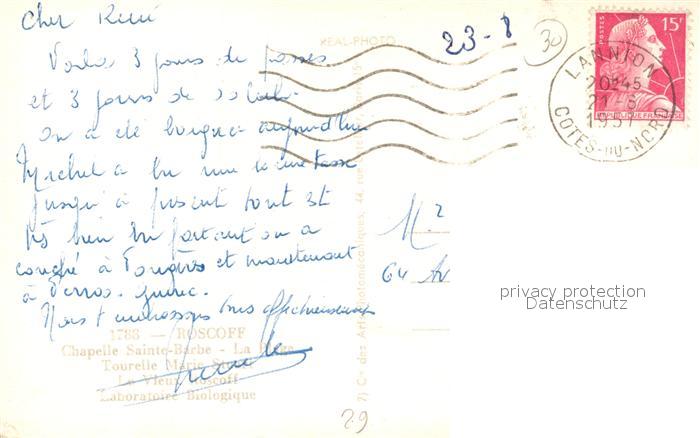 Cher René
Voila 3 jours de passés
et 3 jours de soleil.
on a été aujourd'hui
Michel a bu une tasse
jusqu'à présent tout est
très bien en partant on a
couché à Fougères et maintenant
à Perros-Guirec.
Nous t'embrassons tous affectueusement
23-8
30
REAL-PHOTO
POSTES
15F
REPUBLIQUE FRANCAISE
LANNION
20H45
1957
COTES-DU-NORD
M.
64 Av
privacy protection
Datenschutz
1788 — ROSCOFF
Chapelle Sainte-Barbe - La Plage
Tourelle Marie Stuart
Le Vieux Roscoff
Laboratoire Biologique
Cie des Arts Photomécaniques, 44, rue
29